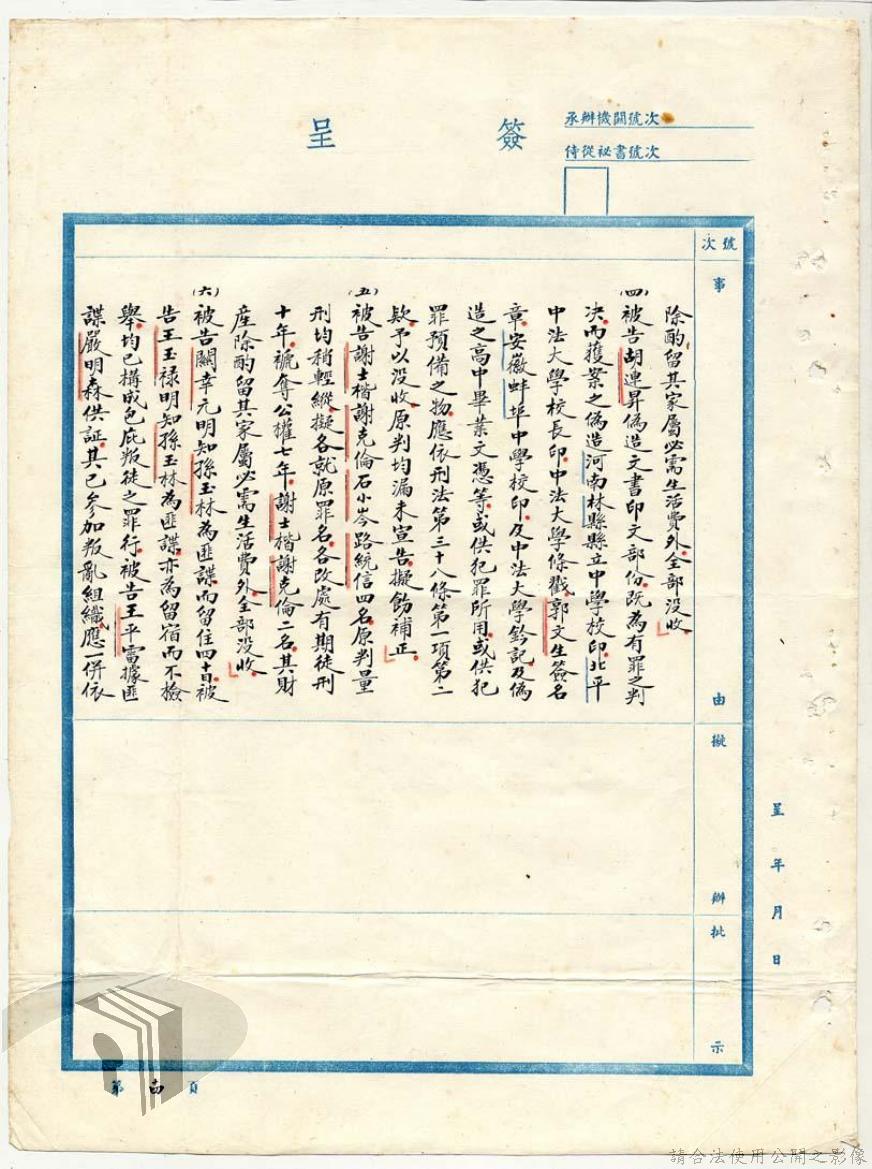 簽呈
承辦機關號次
侍從祕書號次
號次
事由
擬辦
批示
呈 年 月 日
除酌留其家屬必需生活費外全部沒收
(四)被告胡連昇偽造文書印文部份既為有罪之判
決而獲案之偽造河南林縣縣立中學校印北平
中法大學校長印中法大學條戳郭文生簽名
章安徽蚌埠中學校印及中法大學鈐記及偽
造之高中畢業文憑等或供犯罪所用或供犯
罪預備之物應依刑法第三十八條第一項第二
欵予以沒收原判均漏未宣告擬飭補正
(五)被告謝士楷謝克倫石小岑路統信四名原判量
刑均稍輕縱擬各就原罪名各改處有期徒刑
十年褫奪公權七年謝士楷謝克倫二名其財
產除酌留其家屬必需生活費外全部沒收
(六)被告關幸元明知孫玉林為匪諜而留住四十日被
告王玉禄明知孫玉林為匪諜亦為留宿而不檢
舉均已構成包庇叛徒之罪行被告王平甯據匪
諜嚴明森供証其已參加叛亂組織應一併依
第 頁
請合法使用公開之影像